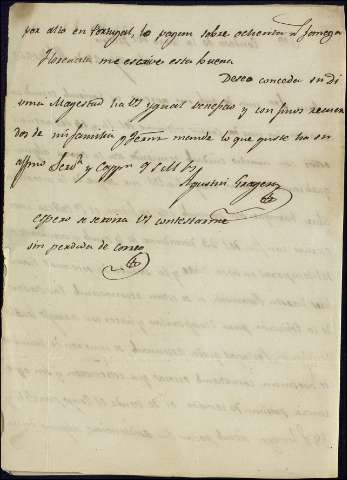 por alto en Portugal, lo pagan sobre ochenta rs fanega
Florencita me escrive esta buena
Deseo conceda su di
vina Magestad ha Vd ygual beneficio y con finos recuer
dos de mi familia y Jenm mande lo que guste ha su
affmo Servr y Cappn Q S M B
Agustin Grageray
espero se servira Vd contestarme
sin perdida de correo